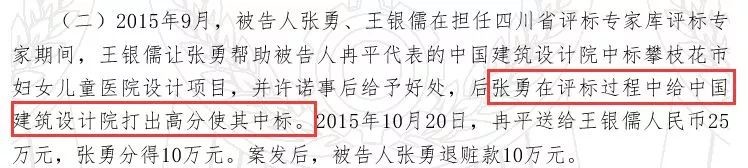 （二）2015年9月，被告人张勇、王银儒在担任四川省评标专家库评标专
家期间，王银儒让张勇帮助被告人冉平代表的中国建筑设计院中标攀枝花市
妇女儿童医院设计项目，并许诺事后给予好处，后张勇在评标过程中给中国
建筑设计院打出高分使其中标。2015年10月20日，冉平送给王银儒人民币25
万元，张勇分得10万元。案发后，被告人张勇退赃款10万元。